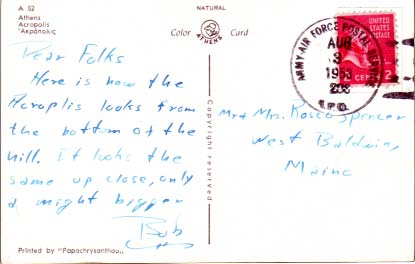 A 52
Athens
Acropolis
Ἀκρόπολις
NATURAL
Color
ATHENS
Card
Dear Folks
Here is how the
Acroplis looks from
the bottom of the
hill. It looks the
same up close, only
a might bigger
Bob
Printed by "Papachrysanthou"
Copyright reserved
ARMY-AIR FORCE POSTAL SERVICE
AUG
3
1953
A.P.O.
UNITED
STATES
POSTAGE
CENTS 2
Mr & Mrs. Roscoe Spencer
West Baldwin,
Maine